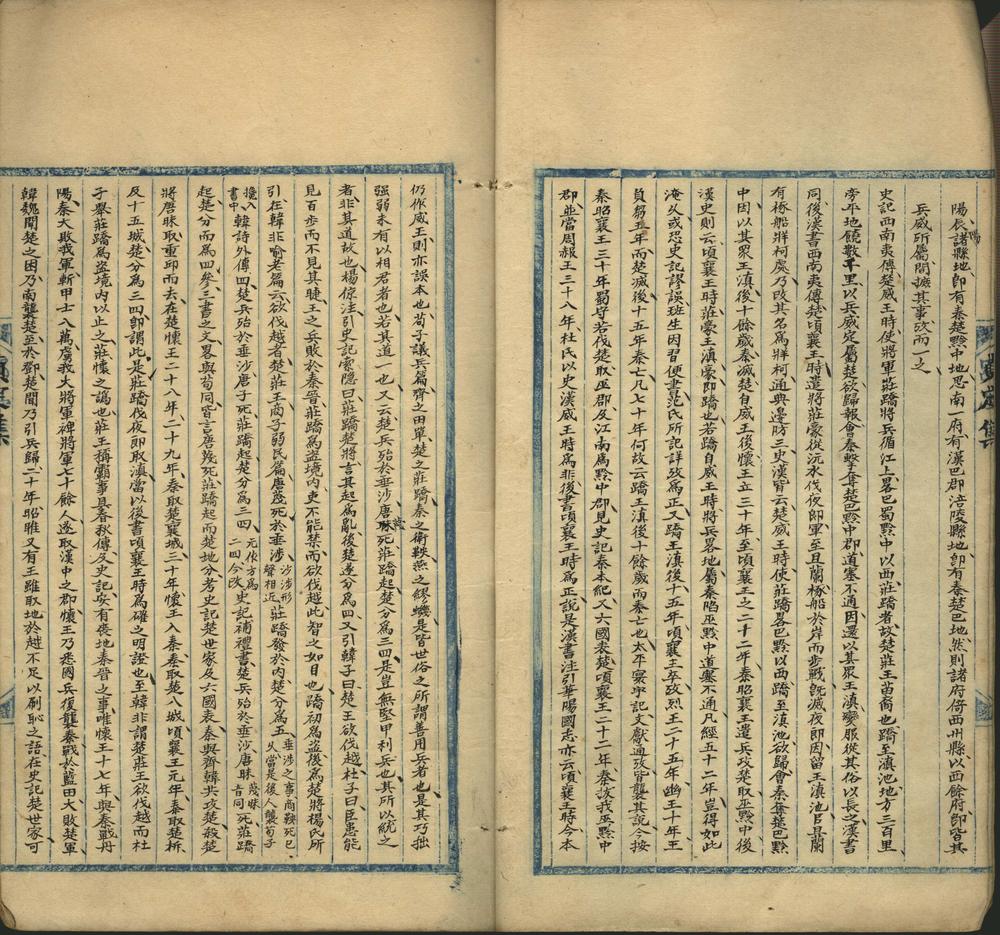 陽、辰諸縣地、即有秦楚黔中地、思南一府、有漢巴郡涪陵縣地、即有秦楚巴地、然則諸府倚西州縣以西餘府、即皆其
兵威所屬、間摭其事攷而一之
史記西南夷傳、楚威王時、使將軍莊蹻將兵循江上、畧巴蜀黔中以西、莊蹻者、故楚莊王苗裔也、蹻至滇池、地方三百里、
旁平地饒數千里、以兵威定屬楚、欲歸報、會秦擊奪楚巴黔中郡、道塞不通、因還以其眾王滇、變服從其俗以長之、漢書
同、後漢書西南夷傳、楚頃襄王時、遣將莊豪從沅水伐夜郎、軍至且蘭、椓船於岸而步戰、旣滅夜郎、因留王滇池、以且蘭
有椓船牂柯處、乃改其名為牂柯、通典邊防三、史漢皆云楚威王時、使莊蹻畧巴黔以西、蹻至滇池、欲歸、會秦奪楚巴黔
中、因以其眾王滇、後十餘歲秦滅楚、自威王後、懷王立三十年、至頃襄王之二十二年、秦昭襄王遣兵攻楚、取巫黔中、後
漢史則云頃襄王時、莊豪王滇、豪即蹻也、若蹻自威王時將兵畧地屬秦、陷巫黔中、道塞不通、凡經五十二年、豈得如此
淹久、或恐史記謬誤、班生因習便書、范氏所記詳攷為正、又蹻王滇後十五年、頃襄王卒、考烈王二十五年、幽王十年、王
負芻五年而楚滅、後十五年秦亡、凡七十年、何故云蹻王滇後十餘歲而秦亡也、太平寰宇記、文獻通攷皆襲其說、今按
秦昭襄王三十年、蜀守若伐楚、取巫郡及江南為黔中郡、見史記秦本紀、又六國表、楚頃襄王二十二年、秦拔我巫黔中
郡、並當周赧王三十八年、杜氏以史漢威王時為非、後書頃襄王時為正、說是、漢書注引華陽國志亦云頃襄王時、今本
仍作威王、則亦誤本也、荀子議兵篇、齊之田單、楚之莊蹻、秦之衞鞅、燕之繆蟣、是皆世俗之所謂善用兵者也、是其巧拙
强弱、未有以相君者也、若其道一也、又云、楚兵殆於垂沙、唐蔑死、莊蹻起、楚分為三四、是豈無堅甲利兵也、其所以統之
者、非其道故也、楊倞注引史記索隱曰、莊蹻、楚將、言其起為亂後、楚遂分為四、又引韓子曰、楚王欲伐越、杜子曰、臣患智能
見百步而不見其睫、王之兵敗於秦晉、莊蹻為盜境內、吏不能禁而欲伐越、此智之如目也、蹻初為盜、後為楚將、楊氏所
引、在韓非喻老篇、云欲伐越者、楚莊王、商子弱民篇、唐蔑死於垂涉、沙涉形聲相近莊蹻發於內、楚分為五、垂涉之事、商鞅死已久、當是後人襲荀子
攙入書中韓詩外傳四、楚兵殆於垂沙、唐子死、莊蹻起、楚分為三四、元作方為二四、今改史記補禮書、楚兵殆於垂沙、唐昧、蔑昧音同死、莊蹻
起、楚分而為四參、三書之文畧與荀同、皆言唐蔑死、莊蹻起而楚地分、考史記楚世家及六國表、秦與齊韓共攻楚、殺楚
將唐昧、取重邱而去、在楚懷王二十八年、二十九年、秦取楚襄城、三十年、懷王入秦、秦取楚八城、頃襄王元年、秦取楚析
及十五城、楚分為三四、即謂此、是莊蹻伐夜郎取滇、當以後書頃襄王時為確之明證也、至韓非謂楚莊王欲伐越、而杜
子舉莊蹻為盜境內以止之、莊懷之譌也、莊王稱霸事具春秋傳及史記、安有喪地秦晉之事、唯懷王十七年、與秦戰丹
陽、秦大敗我軍、斬甲士八萬、虜我大將軍裨將軍七十餘人、遂取漢中之郡、懷王乃悉國兵復襲秦、戰於藍田、大敗楚軍、
韓魏聞楚之困、乃南襲楚、至於鄧、楚聞、乃引兵歸、二十年、昭雎又有王雖取地於越、不足以刷恥之語、在史記楚世家、可